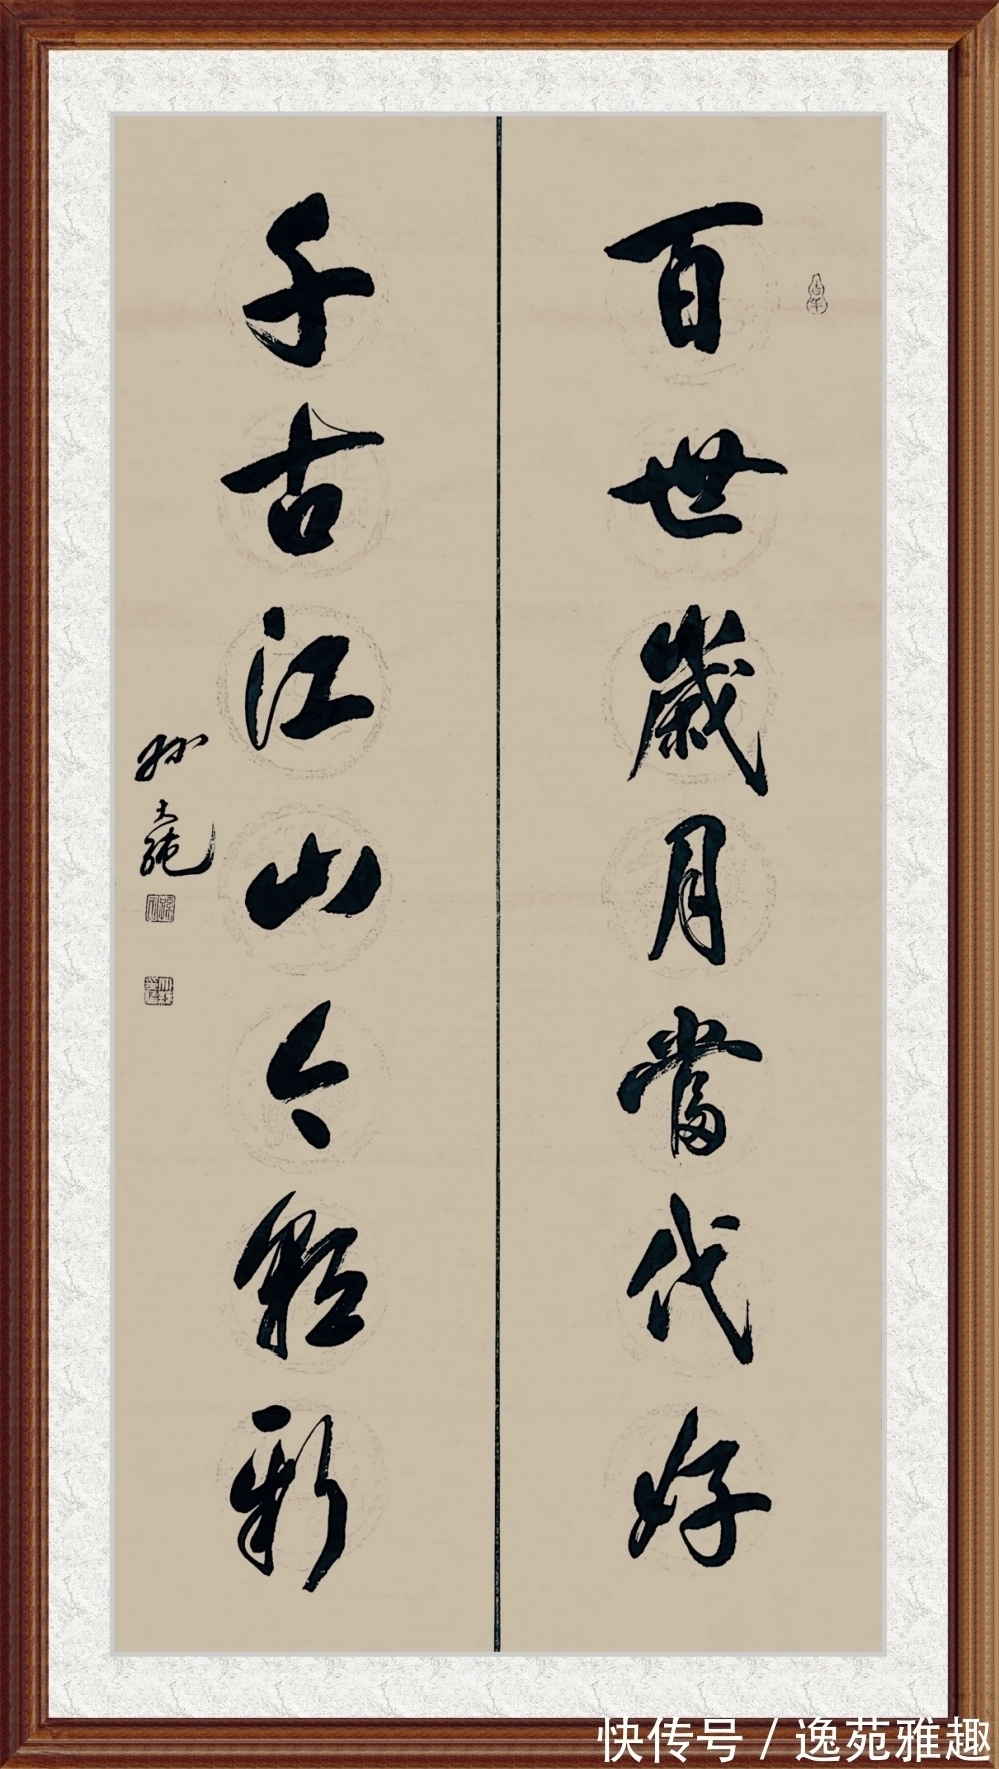 百世歲月當代好
千古江山今朝新
孙大
快传号 / 逸苑雅趣